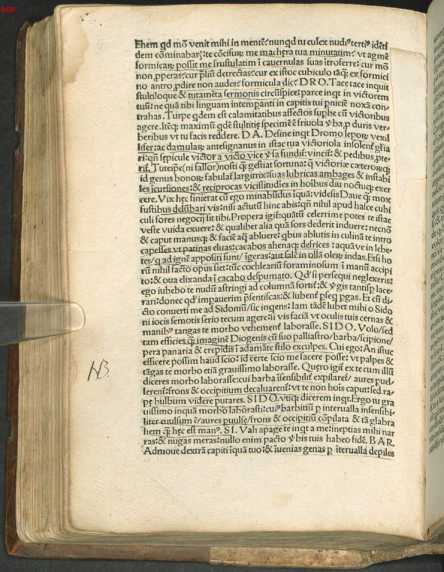 Ehem qd mō venit mihi in mentē: nunqd tu culex nudiꝰ tertiꝰ idem
dem cōminabar: te cōcisuꝝ me machęra tua minutatim: vt agmē
formicaꝝ possit me frustulatim ī cauernulas suas itroferre: cur mō
non pperas: cur plm detrectas: cur ex istoc cubiculo tāq ex formici
no antro pdire non audes: formicula dic: DRO. Tace tace inquit
stultiloque & turamēta sermonis circūspice: parce inqt in victorem
tuū: ne quā tibi linguam intempanti in capitis tui pniciē noxā con
trahas. Turpe qdem est calamitatibus affectos suphe cū victoribus
agere. Itēq maximū qdē stultitię specimē ē friuola ƥba p duris ver
beribus vt tu facis reddere. DA. Desine inqt Dromo lepore vexil
lifer: ac damulaꝝ antesignanus in ista tua victoriola insolens glia
ri: qn sepicule victor a victo vice ƥsa fundit: vincis: & pedibus pte
ris. Tu repe (ni fallor) nosti q gestiat fortuna: q victoriæ cæterosq
id genus bonos: fabulas largitiōes: suas lubricas ambages & instabi
les icurtiones: & reciprocas vicissitudies in hoībus diu noctuq exer
cere. Vix hęc finierat cū ego minabūdus iquā: videsis Daue q mox
fustibus ddosbari vis: nisi actutū hinc abis: qn nihil apud hasce cubi
culi fores negocij sit tibi. Propera igit quātū celerrime potes te istac
veste vuida exuere: & qualibet alia quā fors dederit induere: necnō
& caput manusq & faciē aq abluere: qbus ablutis in culinā te intro
capesses: vt patinas eluas: cacabos ahenaq defrices: aquā ve in lebe
tes / q ad ignē apposti sunt / īgeras: aut sale in olla oleꝝ indas. Etsi ho
rū nihil facto opus siet: tūc cochlearū foraminosum ī manū accipi
to: & oua elixanda ī cacabo despumato. Qd si persequi neglexeris:
ego iubebo te nudū astringi ad columnā forti: & ƥgis tantisp lace-
rari: donec qd impauerim psentiscas: & lubens pseq pgas. Et cū di-
cto conuerti me ad Sidoniū / sic ingens: Iam tādē lubet mihi o Sido
ni iocis semotis serio tecum agere: ū vis faciā vt oculis tuis cernas &
manibꝰ tangas te morbo vehemēs laborasse. SIDO. Volo / sed
tam efficies q imaginē Diogenis cū suo palliastro / barba / scipione /
pera panaria & crepidis ī adamāte stilo exsculpes. Cui ego: An istuc
efficere possim haud scio: id certe scio me facere posse: vt palpes &
tāgas te morbo etiā grauissimo laborasse. Quęro igit ex te cum illū
diceres morbo laborasse: cui barba īsensibilit expilaret / aures puel-
lerent / frons & occipitium decaluarent: vt te non hoīs caput: sed ra-
pę bulbum videre putares. SIDO. vtiq dicerem inqt. Ergo tu gra
uissimo inquā morbo laborasti: cuiꝰ barbitiū p interualla insensibi-
liter euulsum & aures puulse / frons & occipitiū cōpilata & tā glabra
hem q hęc est manꝰ. SI. Vah apage te inqt a me: ineptias mihi nar
ras: & nugas meras: nullo enim pacto ƥbis tuis habeo fidē. BAR.
Admoue dextrā capiti iquā tuo: & iuenias genas p iterualla depiles